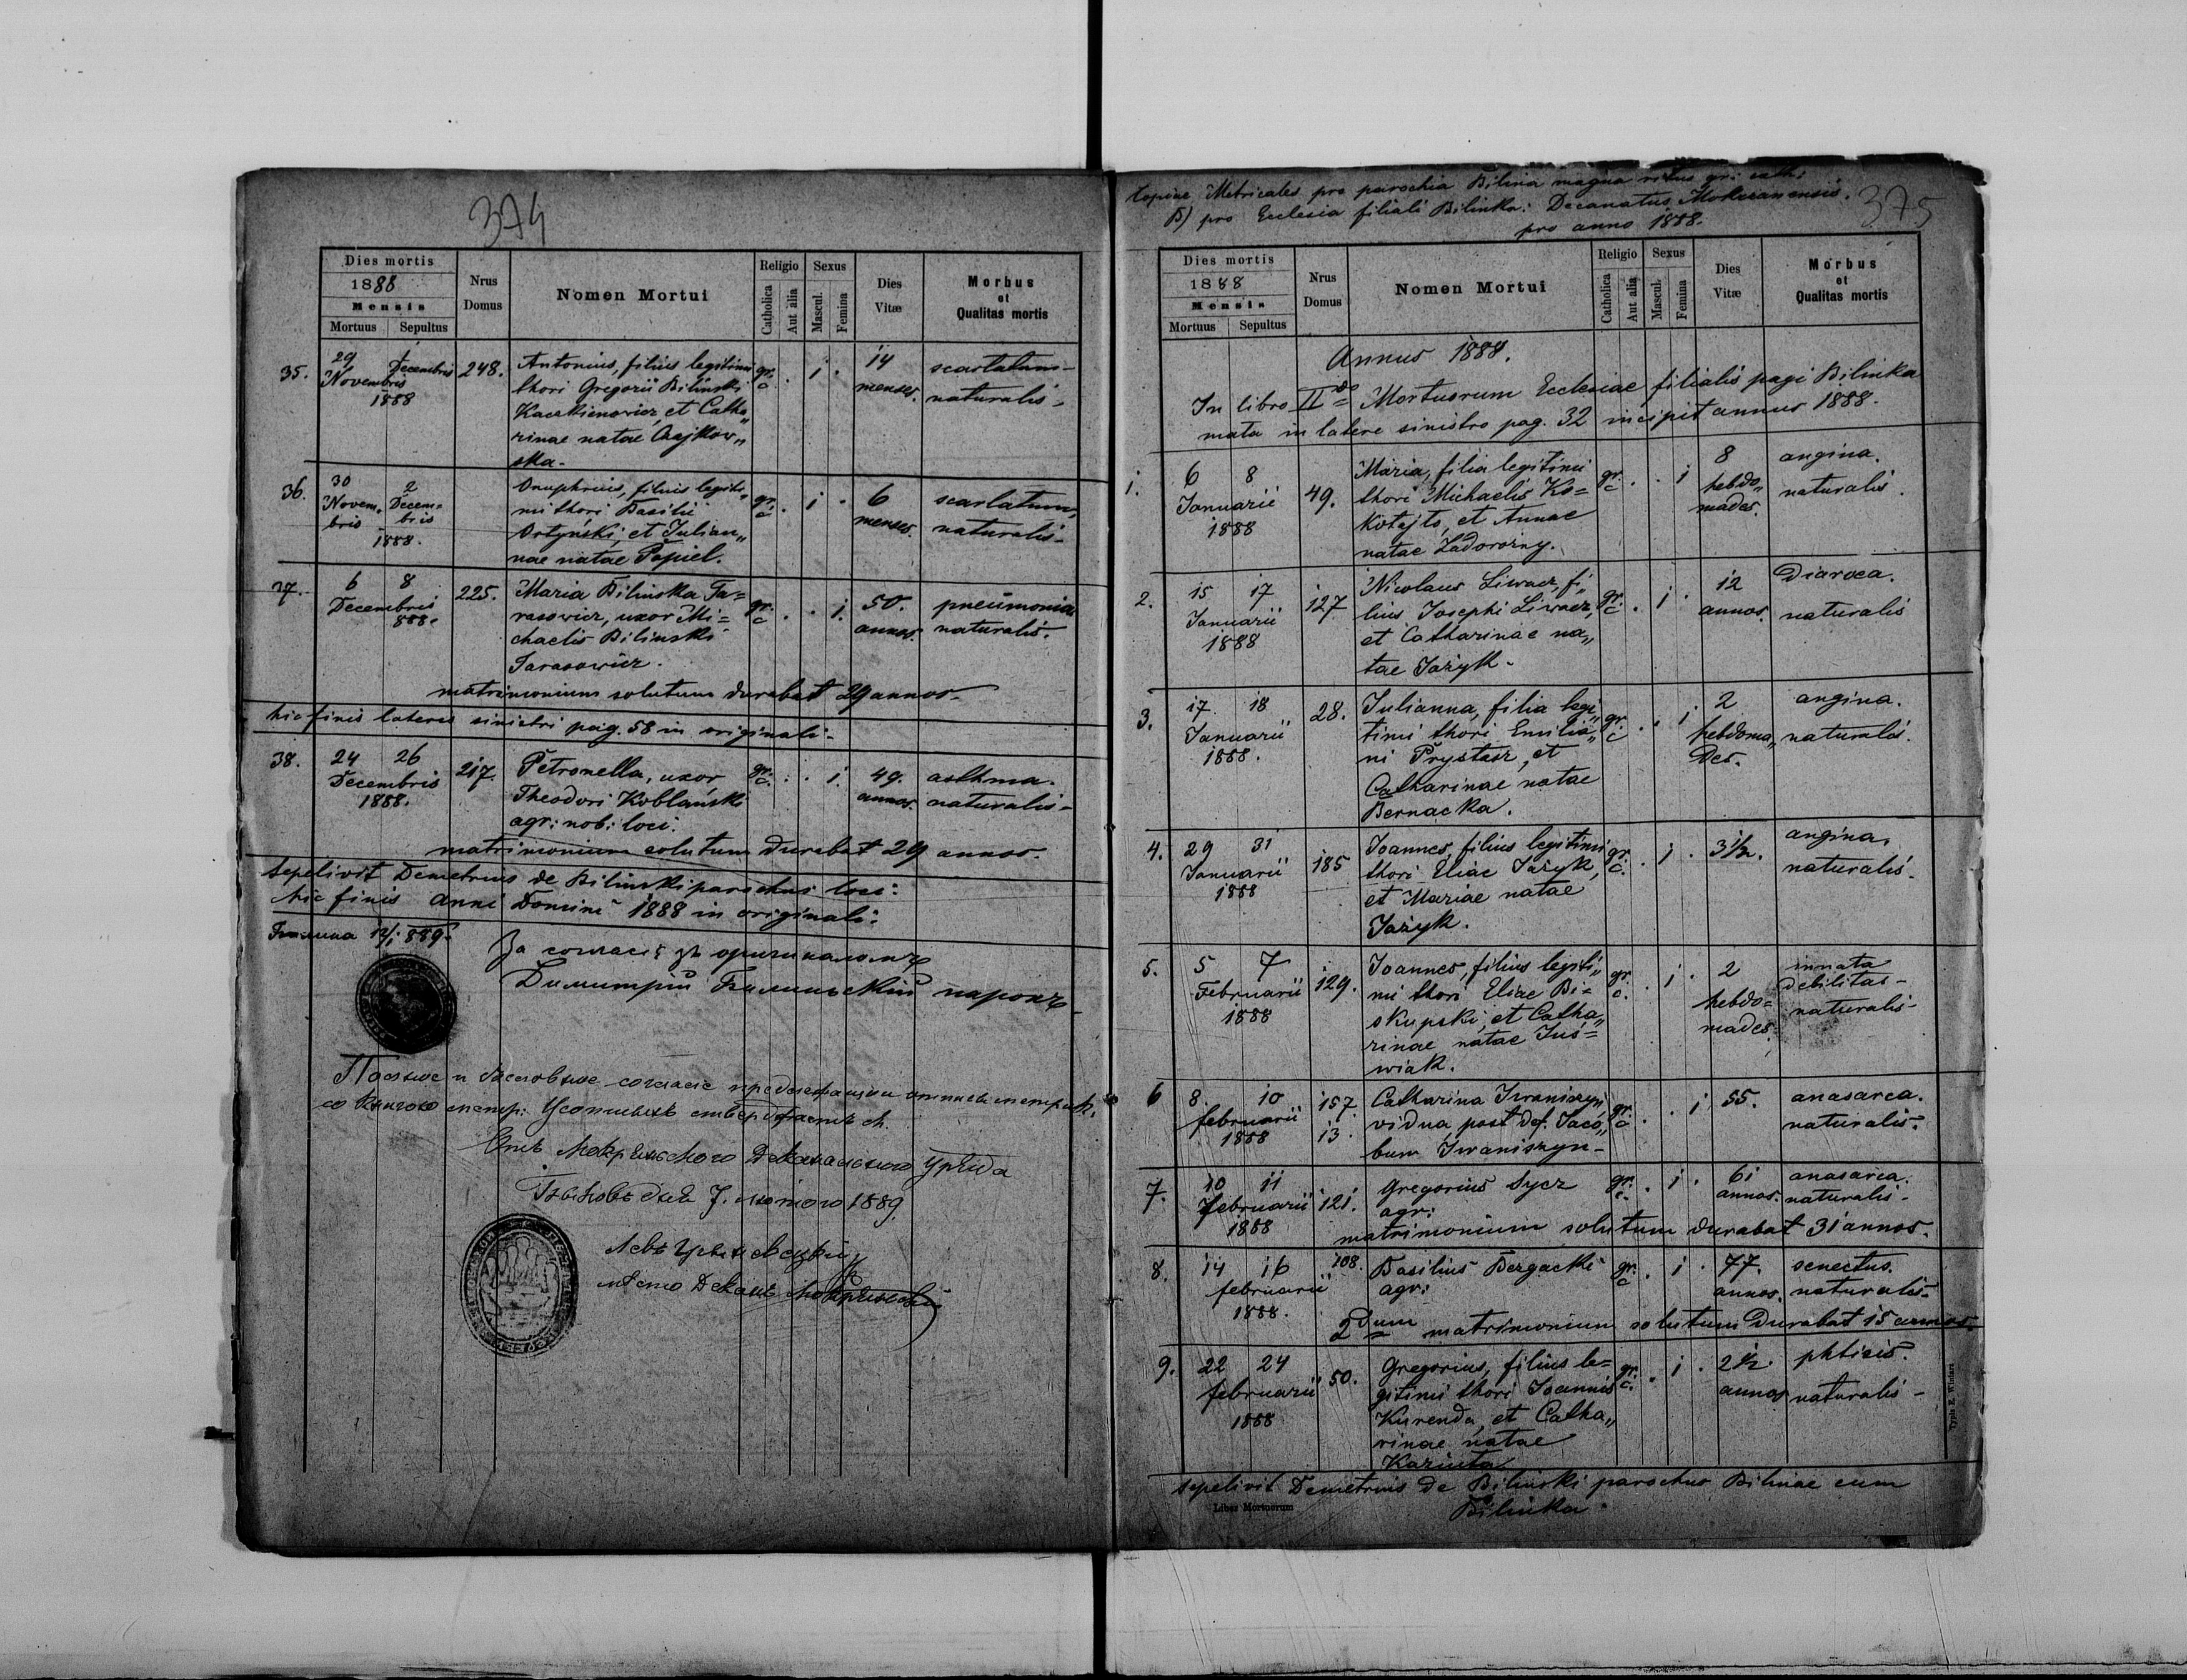 374
Dies mortis
1888
Mensis
Mortuus Sepultus
Nrus
Domus
Nomen Mortui
Religio
Catholica
Aut alia
Sexus
Mascul.
Femina
Dies
Vitæ
Morbus
et
Qualitas mortis
35. 29 1 Novembris Decembris 1888 248. gr. c. . 1 . 14 menses. scarlatum naturalis
Antonius, filius legitimi
thori Gregorii Bilinski
et Catha„
rinae natae Czajkow„
ska.
36. 30 Novembris 2 Decembris 1888. gr. c. . 1 . 6 menses. scarlatum naturalis
Onuphrius, filius legiti„
mi thori Basilii
Ortyński, et Julian„
nae natae Popiel.
37. 6 8 Decembris 888. 225. gr. c. . . 1. 50. annos. pneumonia naturalis.
Maria Bilinska Ta=
rasowicz, uxor Mi=
chaelis Bilinski
Tarasowicz.
matrimonium solutum durabat 29 annos.
hic finis lateris sinistri pag. 58 in originali.
38. 24 26 Decembris 1888. 217. gr. c. . . 1. 49. annos. asthma. naturalis
Petronella, uxor
Theodori Koblański
agr: nob: loci.
matrimonium solutum durabat 29 annos.
Sepelivit Demetrius de Bilinski parochus loci:
hic finis anni Domini 1888 in originali:
12/1 889.
За согласіе зъ оригиналомъ
Димитрій Билиньскій парохъ
Отъ Деканального Уряда
7. лютого 1889.
375
Copiae Metricales pro parochia Bilina magna ritus gr: cath:
B) pro Ecclesia filiali Bilinka: Decanatus Mokrzanensis.
pro anno 1888.
Dies mortis
1888
Mensis
Mortuus Sepultus
Nrus
Domus
Nomen Mortui
Religio
Catholica
Aut alia
Sexus
Mascul.
Femina
Dies
Vitæ
Morbus
et
Qualitas mortis
Annus 1888.
In libro II do Mortuorum Ecclesiae filialis pagi Bilinka
mala in latere sinistro pag. 32 incipit annus 1888.
1. 6 8 Januarii 1888 49. gr. c. . . 1 8 hebdo„ mades. angina. naturalis.
Maria, filia legitimi
thori Michaelis Ko=
Kotajło, et Annae
natae Zadorozny.
2. 15 17 Januarii 1888 127 gr. c. . 1 . 12 annos. Diaroea. naturalis
Nicolaus Liwacz, fi„
lius Josephi Liwacz,
et Catharinae na„
tae Jazyk.
3. 17. 18 Januarii 1888. 28. gr. c. . . 1 2 hebdoma„ des. angina. naturalis.
Julianna, filia legi„
timi thori Emilia„
ni Prystasz, et
Catharinae natae
Bernacka.
4. 29 31 Januarii 1888 185 gr. c. . 1 . 3 1/2. angina. naturalis.
Joannes, filius legitimi
thori Eliae Jazyk,
et Mariae natae
Jazyk.
5. 5 7 Februarii 1888 129. gr. c. . 1 . 2 hebdo= mades. innata debilitas naturalis
Joannes, filius legiti„
mi thori Eliae Bi=
skupski, et Catha„
rinae natae Jus=
wiak.
6 8. 10 februarii 1888 157 13. gr. c. . . 1 55. anasarca. naturalis.
Catharina Iwaniszyn
vidua post def. Jaco„
bum Iwaniszyn
7. 10 11 februarii 1888 121. gr. c. . 1. 61 annos. anasarca. naturalis
Gregorius Sycz
agr:
matrimonium solutum durabat 31 annos.
8. 14 16 februarii 1888. 108. gr. c. . 1 . 77. annos. senectus. naturalis
Basilius Bergacki
agr:
2dum matrimonium solutum durabat 15 annos.
9. 22 24 februarii 1888 50. gr. c. . 1 . 2 1/2. annos phtisis. naturalis
Gregorius, filius le=
gitimi thori Joannis
Kurenda, et Catha„
rinae natae
Sepelivit Demetrius de Bilinski parochus Bilinae cum
Bilinka
Liber Mortuorum
Typis E. Winiarz